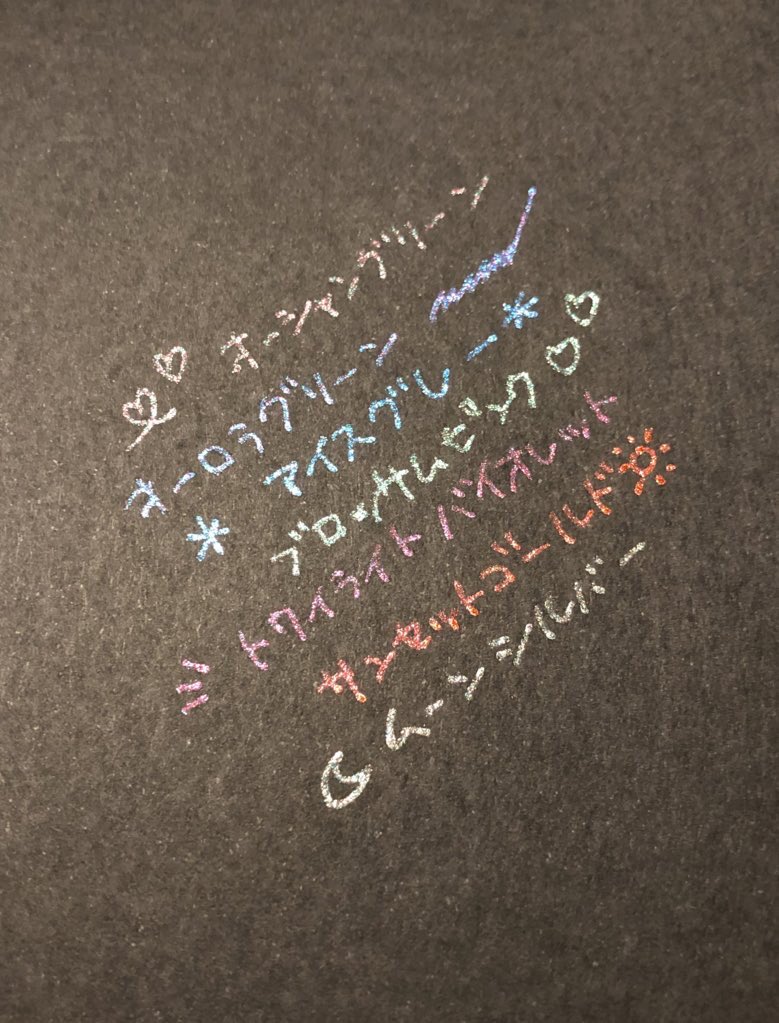 オーシャングリーン
オーロラグリーン
アイスグレー
ブロッサムピンク
トワイライトバイオレット
サンセットゴールド
ムーンシルバー